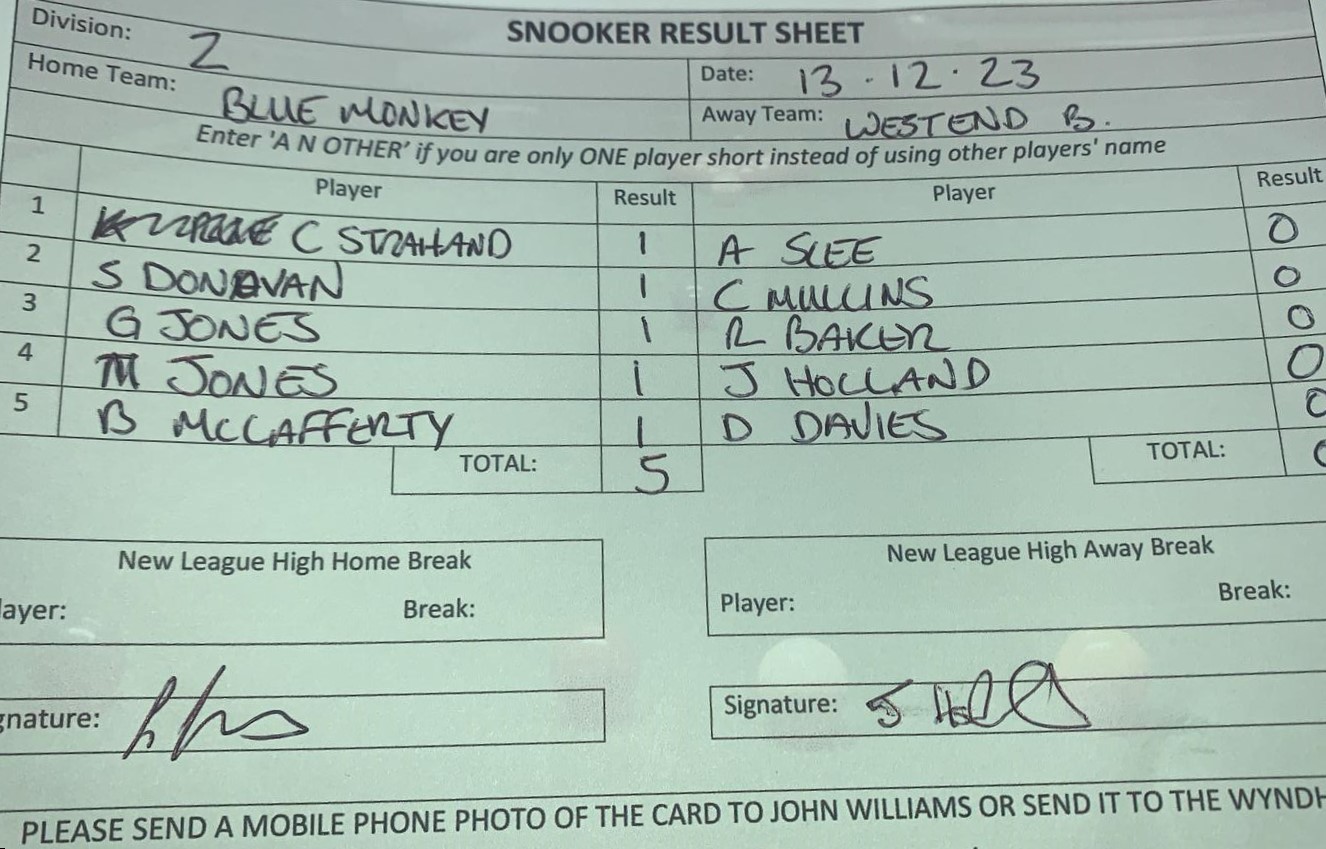 SNOOKER RESULT SHEET
Division: 2
Date: 13.12.23
Home Team: BLUE MONKEY
Away Team: WESTEND B.
Enter 'A N OTHER' if you are only ONE player short instead of using other players' name
Player Result Player Result
1 C STRAHAND 1 A SLEE 0
2 S DONOVAN 1 C MULLINS 0
3 G JONES 1 R BAKER 0
4 M JONES 1 J HOLLAND 0
5 B MCCAFFERTY 1 D DAVIES 0
TOTAL: 5 TOTAL: 0
New League High Home Break
New League High Away Break
layer: Break:
Player: Break:
gnature:
Signature: J
PLEASE SEND A MOBILE PHONE PHOTO OF THE CARD TO JOHN WILLIAMS OR SEND IT TO THE WYNDH